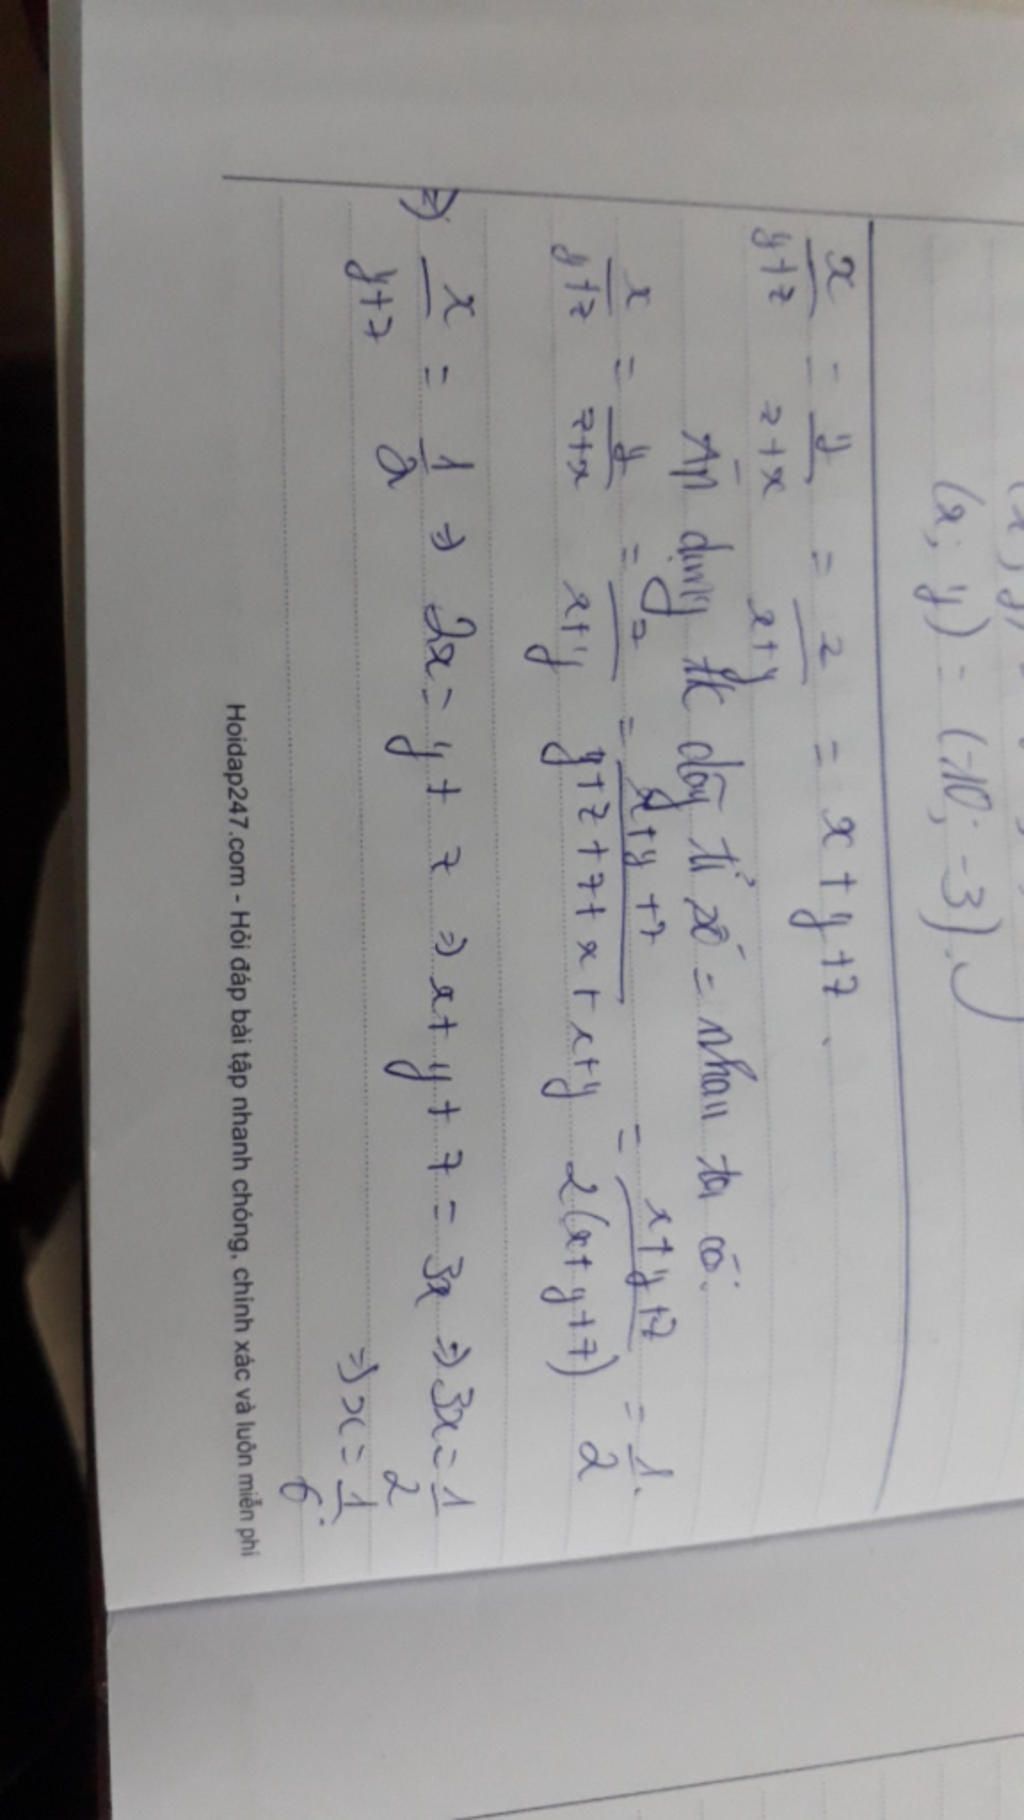 (x; y) = (-10; -3).
x/y+z = y/z+x = z/x+y = x+y+z.
Áp dụng tc dãy tỉ số = nhau ta có:
x/y+z = y/z+x = z/x+y = x+y+z/y+z+z+x+x+y = x+y+z/2(x+y+z) = 1/2.
=) x/y+z = 1/2 => 2x = y+z => x+y+z = 3x => 3x = 1/2
=> x = 1/6.
Hoidap247.com - Hỏi đáp bài tập nhanh chóng, chính xác và luôn miễn phí